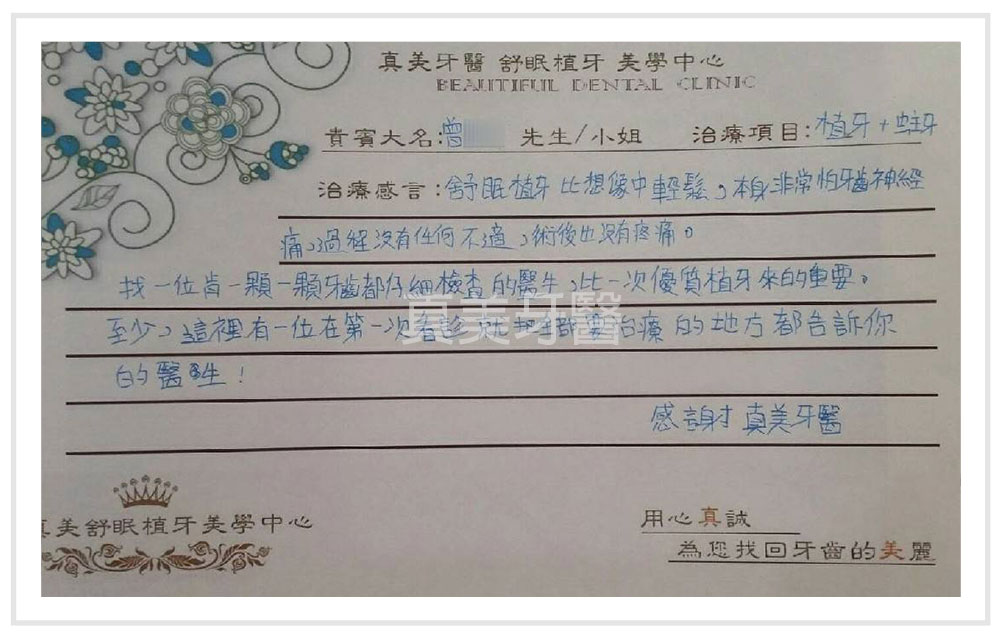 真美牙醫 舒眠植牙 美學中心
BEAUTIFUL DENTAL CLINIC
貴賓大名:曾 先生/小姐 治療項目:植牙+蛀牙
治療感言:舒眠植牙比想像中輕鬆,本身非常怕牙齒神經
痛,過程沒有任何不適,術後也沒有疼痛。
找一位肯一顆一顆牙齒都仔細檢查的醫生,比一次優質植牙來的重要。
至少,這裡有一位在第一次看診就把需要治療的地方都告訴你
的醫生!
感謝 真美牙醫
真美牙醫
真美舒眠植牙美學中心
用心真誠
為您找回牙齒的美麗